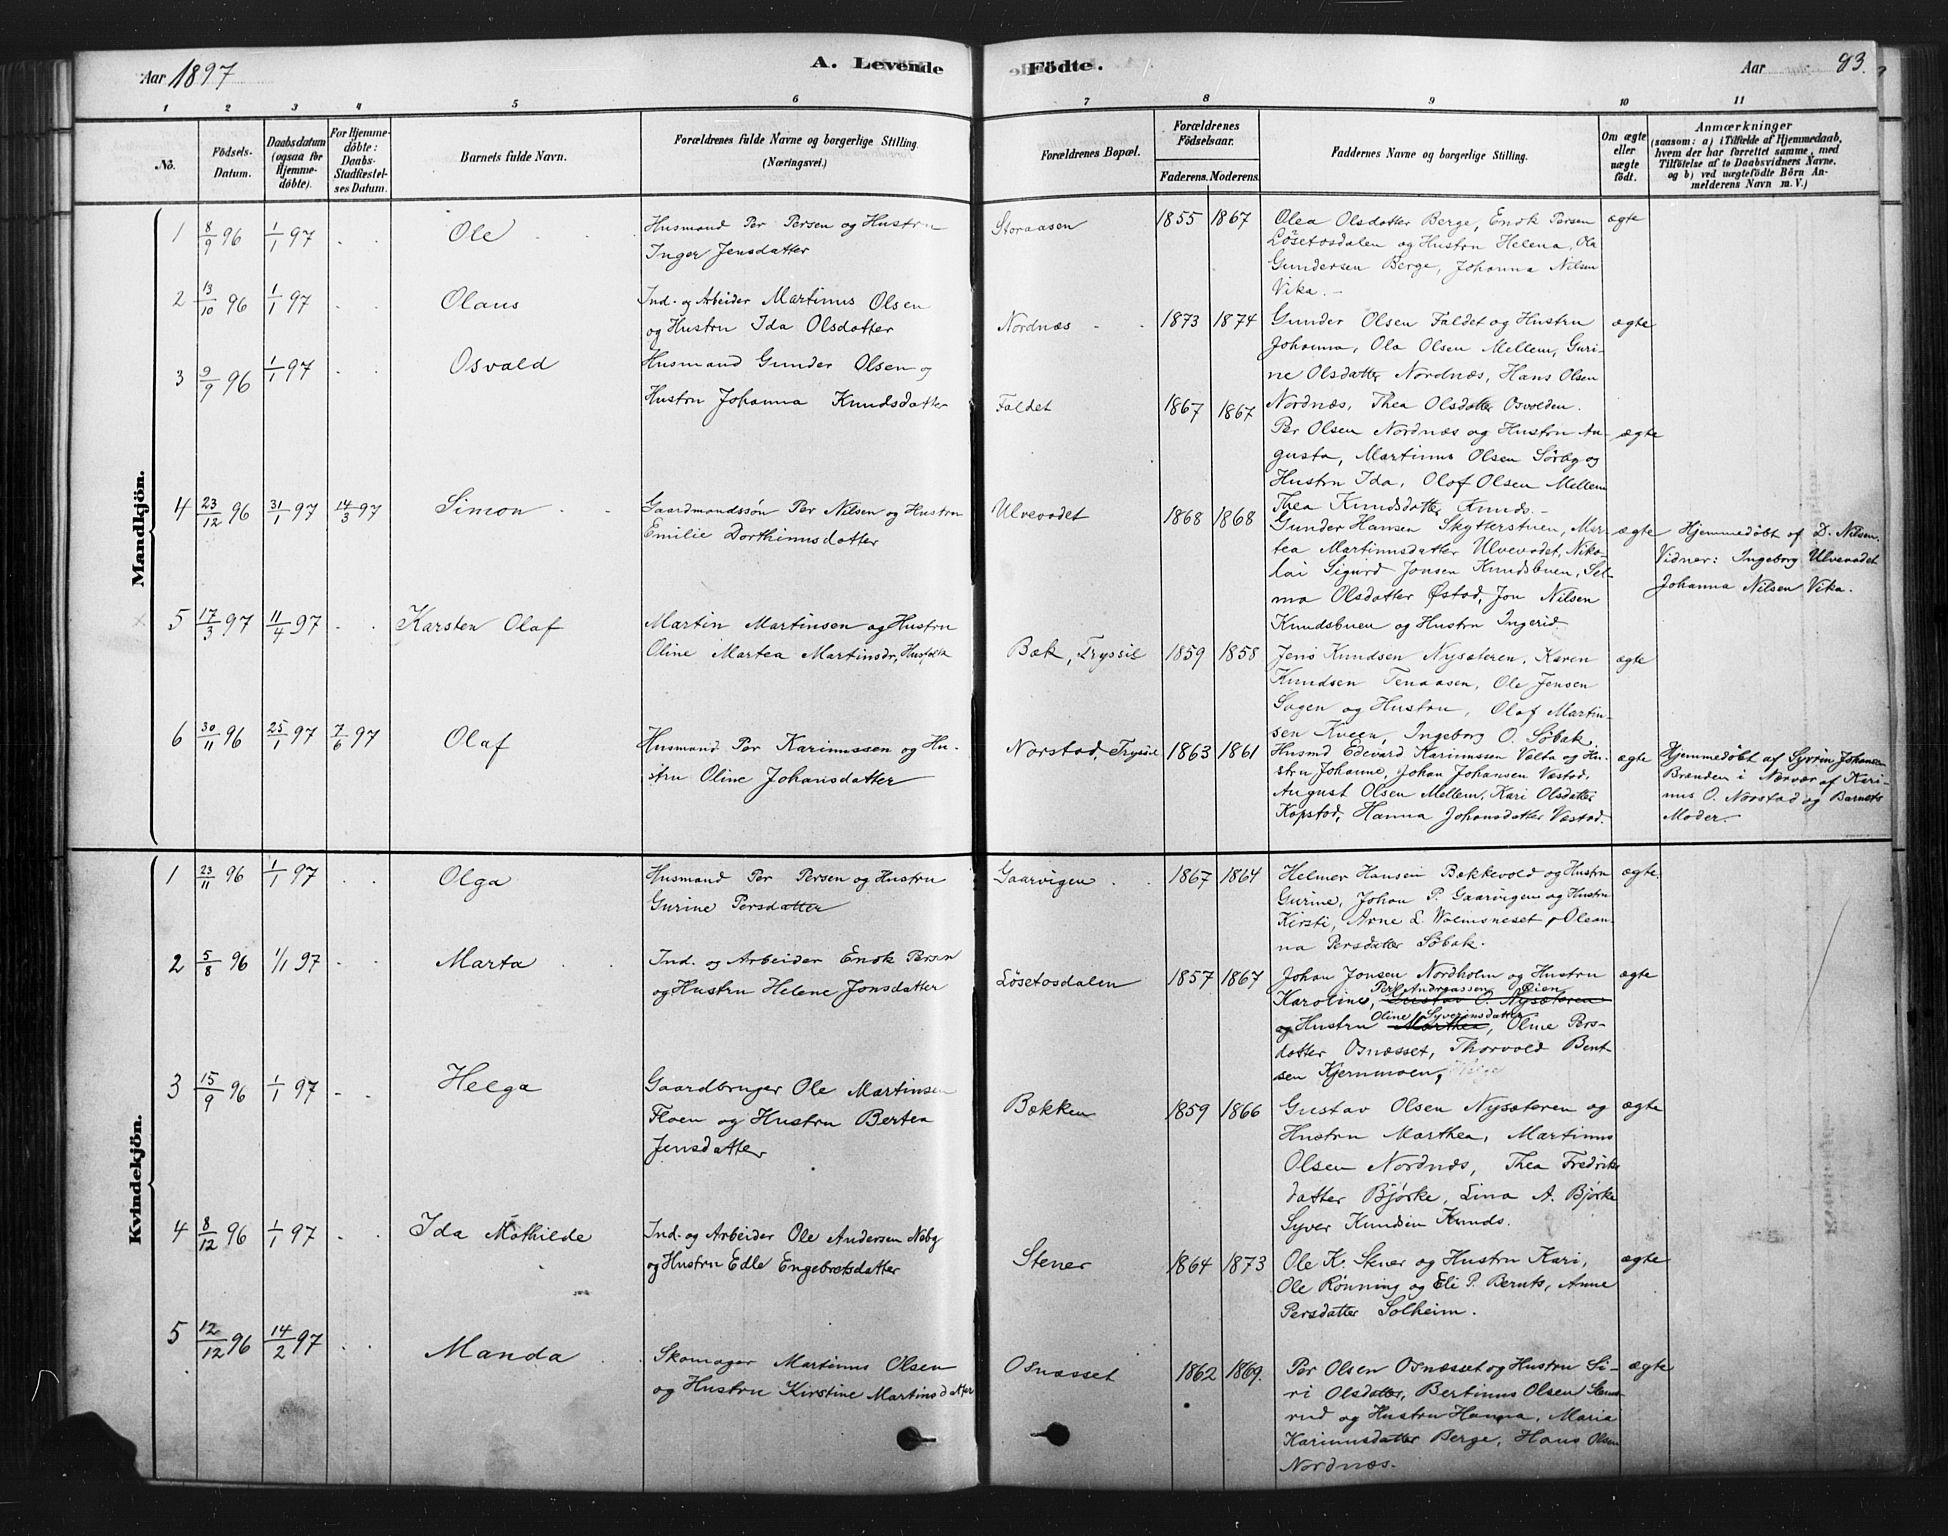 Aar 1897
A. Levende Födte.
Aar 93.
1 2 3 4 5 6 7 8 9 10 11
No.
Födsels-Datum.
Daabsdatum (ogsaa for Hjemme-döbte).
For Hjemme-döbte: Daabs-Stadfæstel-ses Datum.
Barnets fulde Navn.
Forældrenes fulde Navne og borgerlige Stilling. (Næringsvei.)
Forældrenes Bopæl.
Forældrenes Födselsaar.
Faderens. Moderens.
Faddernes Navne og borgerlige Stilling.
Om ægte eller uægte födt.
Anmærkninger
(saasom: a) i Tilfælde af Hjemmedaab,
hvem der har forrettet samme, med
Tilföielse af to Daabsvidners Navne,
og b) ved uægtefödte Börn An-
melderens Navn m. V.)
Mandkjön.
1 8/9 96 1/1 97 Ole
Husmand Per Persen og Hustru
Inger Jensdatter
Storaasen 1855 1867
Olea Olsdatter Berge, Enok Persen
Lösetosdalen og Hustru Helena, Ola
Gundersen Berge, Johanna Nilsen
Vika.
ægte
2 13/10 96 1/1 97 Olaus
Ind. og Arbeider Martinus Olsen
og Hustru Ida Olsdatter
Nordnæs 1873 1874
Gunder Olsen Faldet og Hustru
Johanna, Ola Olsen Mellem, Guri-
ne Olsdatter Nordnæs, Hans Olsen
Nordnæs, Thea Olsdatter Osvolden.
ægte
3 9/9 96 1/1 97 Osvald
Husmand Gunder Olsen og
Hustru Johanna Knudsdatter
Faldet 1867 1867
Per Olsen Nordnæs og Hustru Au-
gusta, Martinus Olsen Sörby og
Hustru Ida, Olof Olsen Mellem
Thea Knudsdatter Knuds.
ægte
4 23/12 96 31/1 97 14/3 97 Simon
Gaardmandssön Per Nilsen og Hustru
Emilie Dorthinusdatter
Ulvevadet 1868 1868
Gunder Hansen Skytterstuen, Mar-
tea Martinusdatter Ulvevadet, Niko-
lai Sigurd Jonsen Knudsbuen, Sel-
ma Olsdatter Østad, Jon Nilsen
Knudsbuen og Hustru Ingerid
ægte
Hjemmedöbt af D. Nilsen.
Vidner: Ingeborg Ulvevadet
Johanna Nilsen Vika.
5 17/3 97 11/4 97 Karsten Olaf
Martin Martinsen og Hustru
Oline Martea Martinsdr,
Bæk, Trysil 1859 1858
Jens Knudsen Nysæteren, Karen
Knudsen Tenaasen, Ole Jensen
Sagen og Hustru, Olaf Martin-
sen Kveen, Ingeborg O. Søbak
ægte
6 30/11 96 25/1 97 7/6 97 Olaf
Husmand Per Karinussen og Hu-
stru Oline Johansdatter
Norstad, Trysil 1863 1861
Husmd Edevard Karinussen Valta og Hu-
stru Johanne, Johan Johansen Væstad,
August Olsen Mellem, Kari Olsdatter
Kopstad, Hanna Johansdatter Væstad.
ægte
Hjemmedöbt af Syvrin Johansen
Brænden i Nærvær af Kari-
nus O. Norstad og Barnets
Moder.
Kvindekjön.
1 23/11 96 1/1 97 Olga
Husmand Per Persen og Hustru
Gurine Persdatter
Gaarvigen 1867 1864
Helmer Hansen Bækkevold og Hustru
Gurine, Johan P. Gaarvigen og Hustru
Kirsti, Arne L. Volmsneset & Olean-
na Persdatter Søbak.
ægte.
2 5/8 96 1/1 97 Marta
Ind. og Arbeider Enok Persen
og Hustru Helene Jonsdatter
Løsetosdalen 1857 1867
Johan Jonsen Nordholm og Hustru
Per Andreassen Öien
Karoline, Gustav O. Nysæteren
Oline Syverinsdatter
og Hustru Marthea, Oline Pers-
datter Osnæsset, Thorvald Bent-
sen Kjernmoen,
ægte
3 15/9 96 1/1 97 Helga
Gaardbruger Ole Martinsen
Floen og Hustru Bertea
Jensdatter
Bækken 1859 1866
Gustav Olsen Nysæteren og
Hustru Marthea, Martinus
Olsen Nordnæs, Thea Fredriks
datter Bjørke, Lina A. Bjørke
Syver Knudsen Knuds.
ægte
4 8/12 96 1/1 97 Ida Mathilde
Ind. og Arbeider Ole Andersen Neby
og Hustru Edle Engebretsdatter
Stener 1864 1873
Ole K. Stener og Hustru Kari,
Ole Rønning og Eli P. Bernts, Anne
Persdatter Solheim.
ægte
5 12/12 96 14/2 97 Manda
Skomager Martinus Olsen
og Hustru Kirstine Martinsdatter
Osnæsset 1862 1869.
Per Olsen Osnæsset og Hustru Si-
ri Olsdatter, Bertinus Olsen Stens-
rud og Hustru Hanna, Maria
Karinusdatter Berge, Hans Olsen
Nordnæs.
ægte